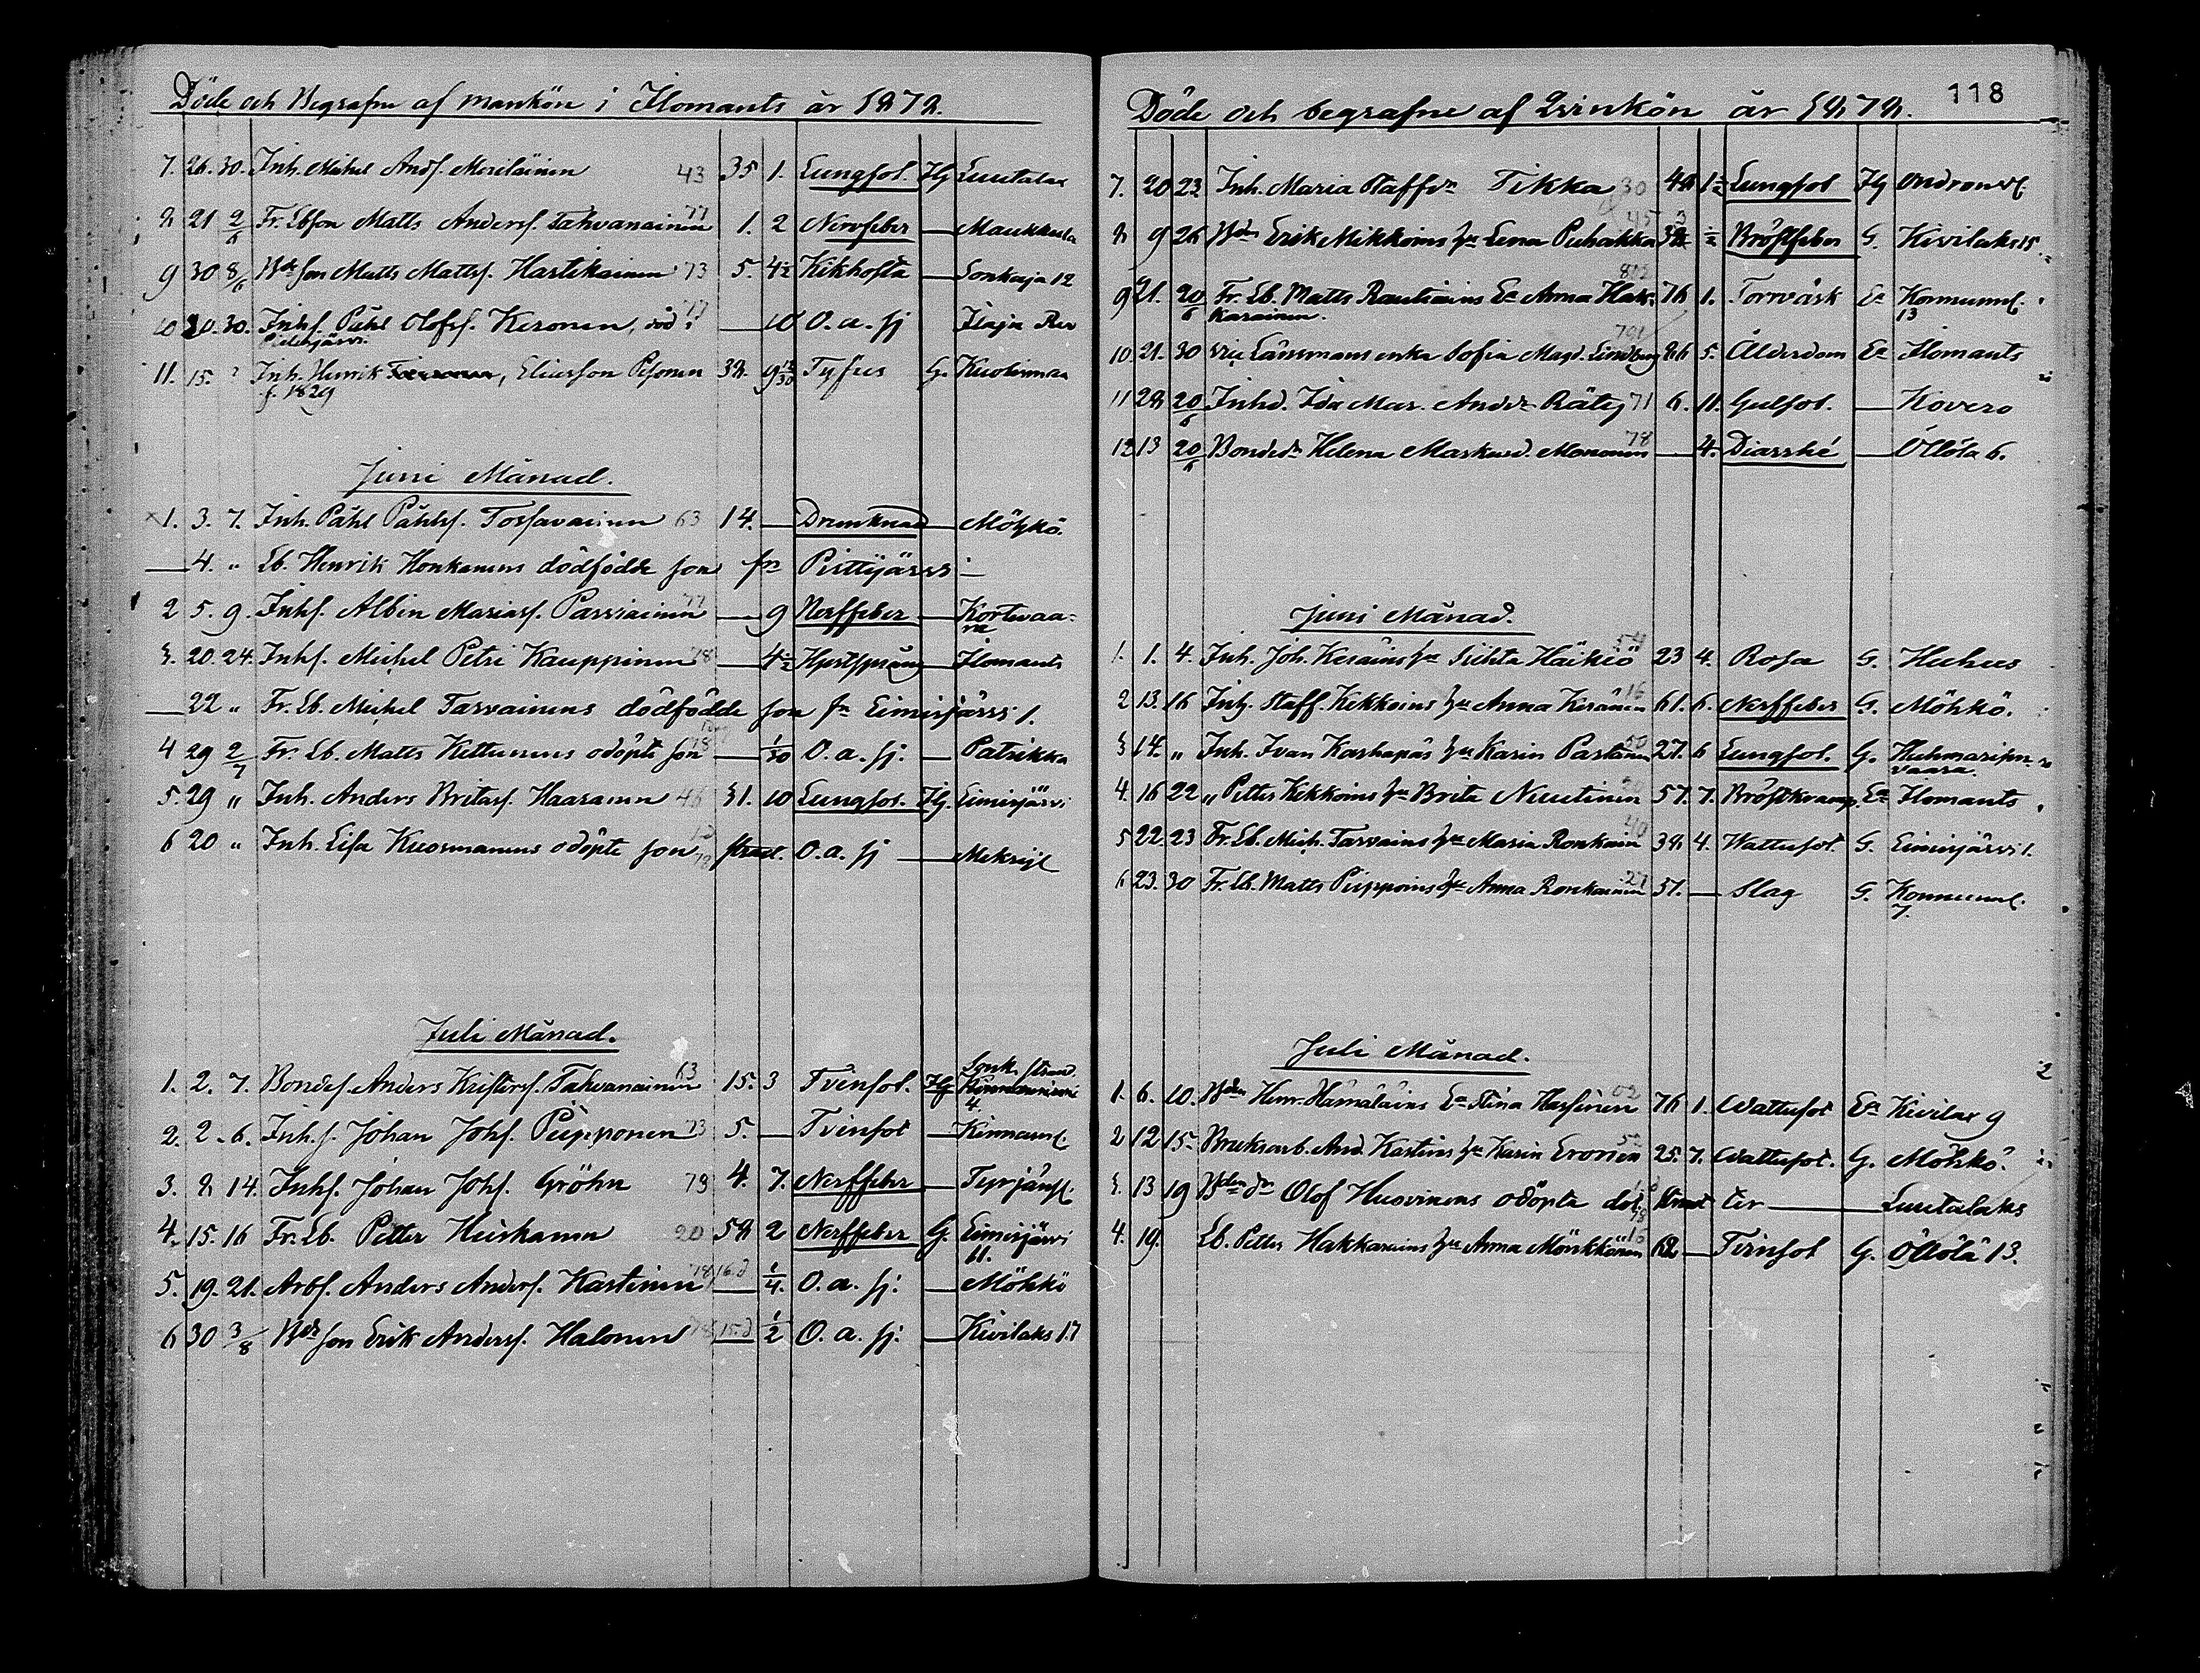 Döde och Begrafne af mankön i Ilomants år 1878.
7. 26. 30. Inh. Michel Andf. Meriläinen 43 35 1. Lungsot. Hg Luutalax
8 21 2/6 Fr. Lbson Matts Andersf. Tahvanainen 77 1. 2 Nervfeber — Maukkula
9 30 8/6 Bde son Matts Mattsf. Hartikainen 73 5. 4½ Kikhosta — Sonkaja 12
10 20. 30. Inhf. Påhl Olofsf. Keronen, död i 77 — 10 O. a. sj Ilaja Rev
Pielisjärvi.
11. 15. ? Inh. Henrik Eliasson Pesonen 38. 9 Tyfus G. Kuolismaa
f. 1829
Juni Månad.
×1. 3. 7. Inh. Påhl Påhlsf. Tossavainen 63 14. — Drunknad — Möhkö.
— 4. „ Lb. Henrik Honkanens dödfödde son fn Piittijärvi —
2 5. 9. Inhf. Albin Mariasf. Parviainen 77 — 9 Nerffeber — Kortevaa-
ra
3. 20. 24. Inhf. Michel Petri Kauppinen 78 — 4½ Hjertsprång Ilomants
— 22 „ Fr. Lb. Michel Tarvainens dödfödde son fn Eimisjärvi 1.
4 29 2/7 Fr. Lb. Matts Kettunens odöpte son 78 — 1/30 O. a. sj. — Patrikka
5. 29 „ Inh. Anders Britasf. Haaranen 46 31. 10 Lungsot. Hg. Eimisjärvi
6 20 „ Inh. Lisa Kuosmanens odöpte son 78 strax. O. a. sj — Mekrijf
Juli Månad.
1. 2. 7. Bondef. Anders Kristersf. Tahvanainen 63 15. 3 Tvinsot. Hg
4.
2. 2 - 6. Inh. f. Johan Johf. Piipponen 73 5. — Tvinsot — Kinnaunf.
3. 8 14. Inhf. Johan Johf. Gröhn 73 4. 7. Nerffeber — Tyrjänsf.
4. 15. 16 Fr. Lb. Petter Heiskanen 20 58 2 Nerffeber G. Eimisjärvi
11.
5. 19. 21. Arbf. Anders Andersf. Kastinen 78 16. d — ¼. O. a. sj. — Möhkö
6 30 3/8 Bde son Erik Andersf. Halonen 78 15. d ½ O. a. sj. — Kivilaks 17
118
Döde och begrafne af Qvinkön år 1878.
7. 20 23 Inh. Maria Staffdr Tikka 30 48 1½ Lungsot Hg Ondronvf.
8 9 26 Bden Erik Mikkoins hu Lena Puhakka 45 ½ Bröstfeber G. Kivilaks 15.
9 21. 20/6 Fr. Lb. Matts Rautiains Ea Anna Hak- 802 76 1. Torrvärk Ea Konnunnf.
karainen. 13
10. 21. 30 vice Länsmans enka Sofia Magd. Lindberg 791 86 5. Ålderdom Ea Ilomants
11 28 20/6 Inhd. Ida Mar. Andr. Räty 71 6. 11. Gulsot. — Kovero
12 13 20/6 Bondedr Helena Markusd. Mononen 78 — 4. Diarrhé — Öllölä 6.
Juni Månad.
1. 1. 4. Inh. Joh. Keräins hu Häikiö 54 23 4. Rosa G. Huhus
2 13. 16 Inh. Staff. Kekkoins hu Anna Keränen 16 61. 6. Nerffeber G. Möhkö.
3 14. „ Inh. Ivan Karhapäs hu Karin Partanen 50 27. 6 Lungsot. G. Huhmarisen-
vaara.
4. 16 22 „ Petter Kekkoins hu Brita Nuutinen 57. 7. Bröstkramp. Ea Ilomants
5 22. 23 Fr. Lb. Mich. Tarvains hu Maria Ronkain 40 38 4. Wattusot G. Eimisjärvi 1.
6 23. 30 Fr. Lb. Matts Piippoins hu Anna Ronkainen 27 51. — Slag G. Konnunnf.
7.
Juli Månad.
1. 6. 10. Bden Henr. Hämäläins Ea Stina Hassinen 02 76 1. Wattusot Ea Kivilax 9
2 12 15. Bruksarb. And. Kastins hu Karin Eronen 52 25. 7. Wattusot. G. Möhkö.
3. 13 19 Bden dr Olof Huovinens odöpta dot- 78 strax ter — Luutalaks
4. 19. Lb. Petter Hakkarains hu Anna Mönkkönen 16 62 — Tvinsot G. Öllölä 13.